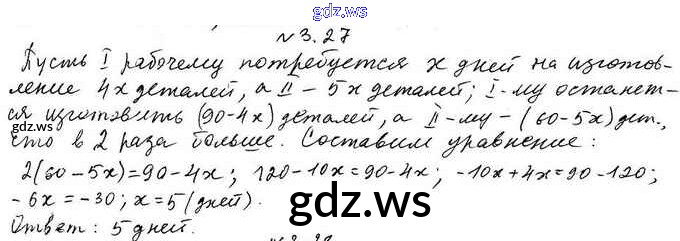 gdz.ws
№3.27
Пусть I рабочему потребуется x дней на изготов-
ление 4x деталей, а II - 5x деталей; I-му останет-
ся изготовить (90-4x) деталей, а II-му - (60-5x) дет.,
gdz.ws
gdz.ws
что в 2 раза больше. Составим уравнение:
2(60-5x)=90-4x; 120-10x=90-4x; -10x+4x=90-120;
-6x=-30; x=5 (дней).
gdz.ws
Ответ: 5 дней.